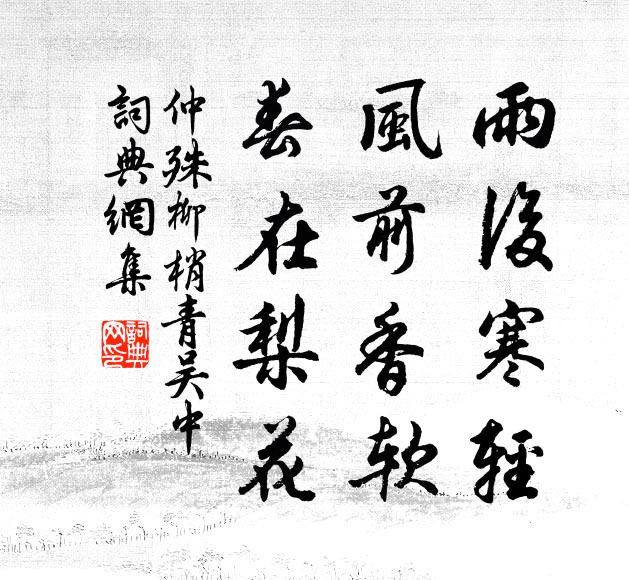 雨後寒輕
風前香軟
春在梨花
仲殊柳梢青吳中
詞典網集
詞典網印